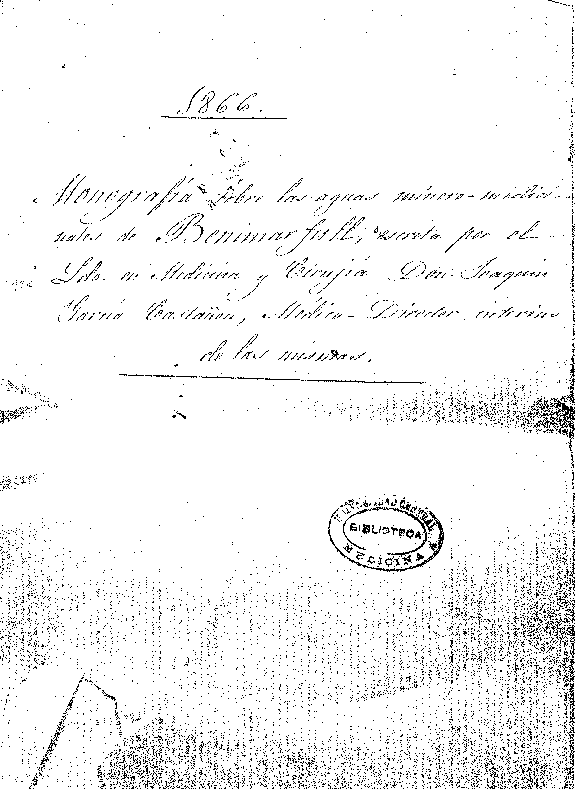 1866.
Monografía sobre las aguas minero-medici-
nales de Benimarfull, escrita por el
Ldo. en Medicina y Cirujía Don Joaquin
García Castañon, Médico-Director interino
de las mismas.
UNIVERSIDAD CENTRAL
BIBLIOTECA
MEDICINA